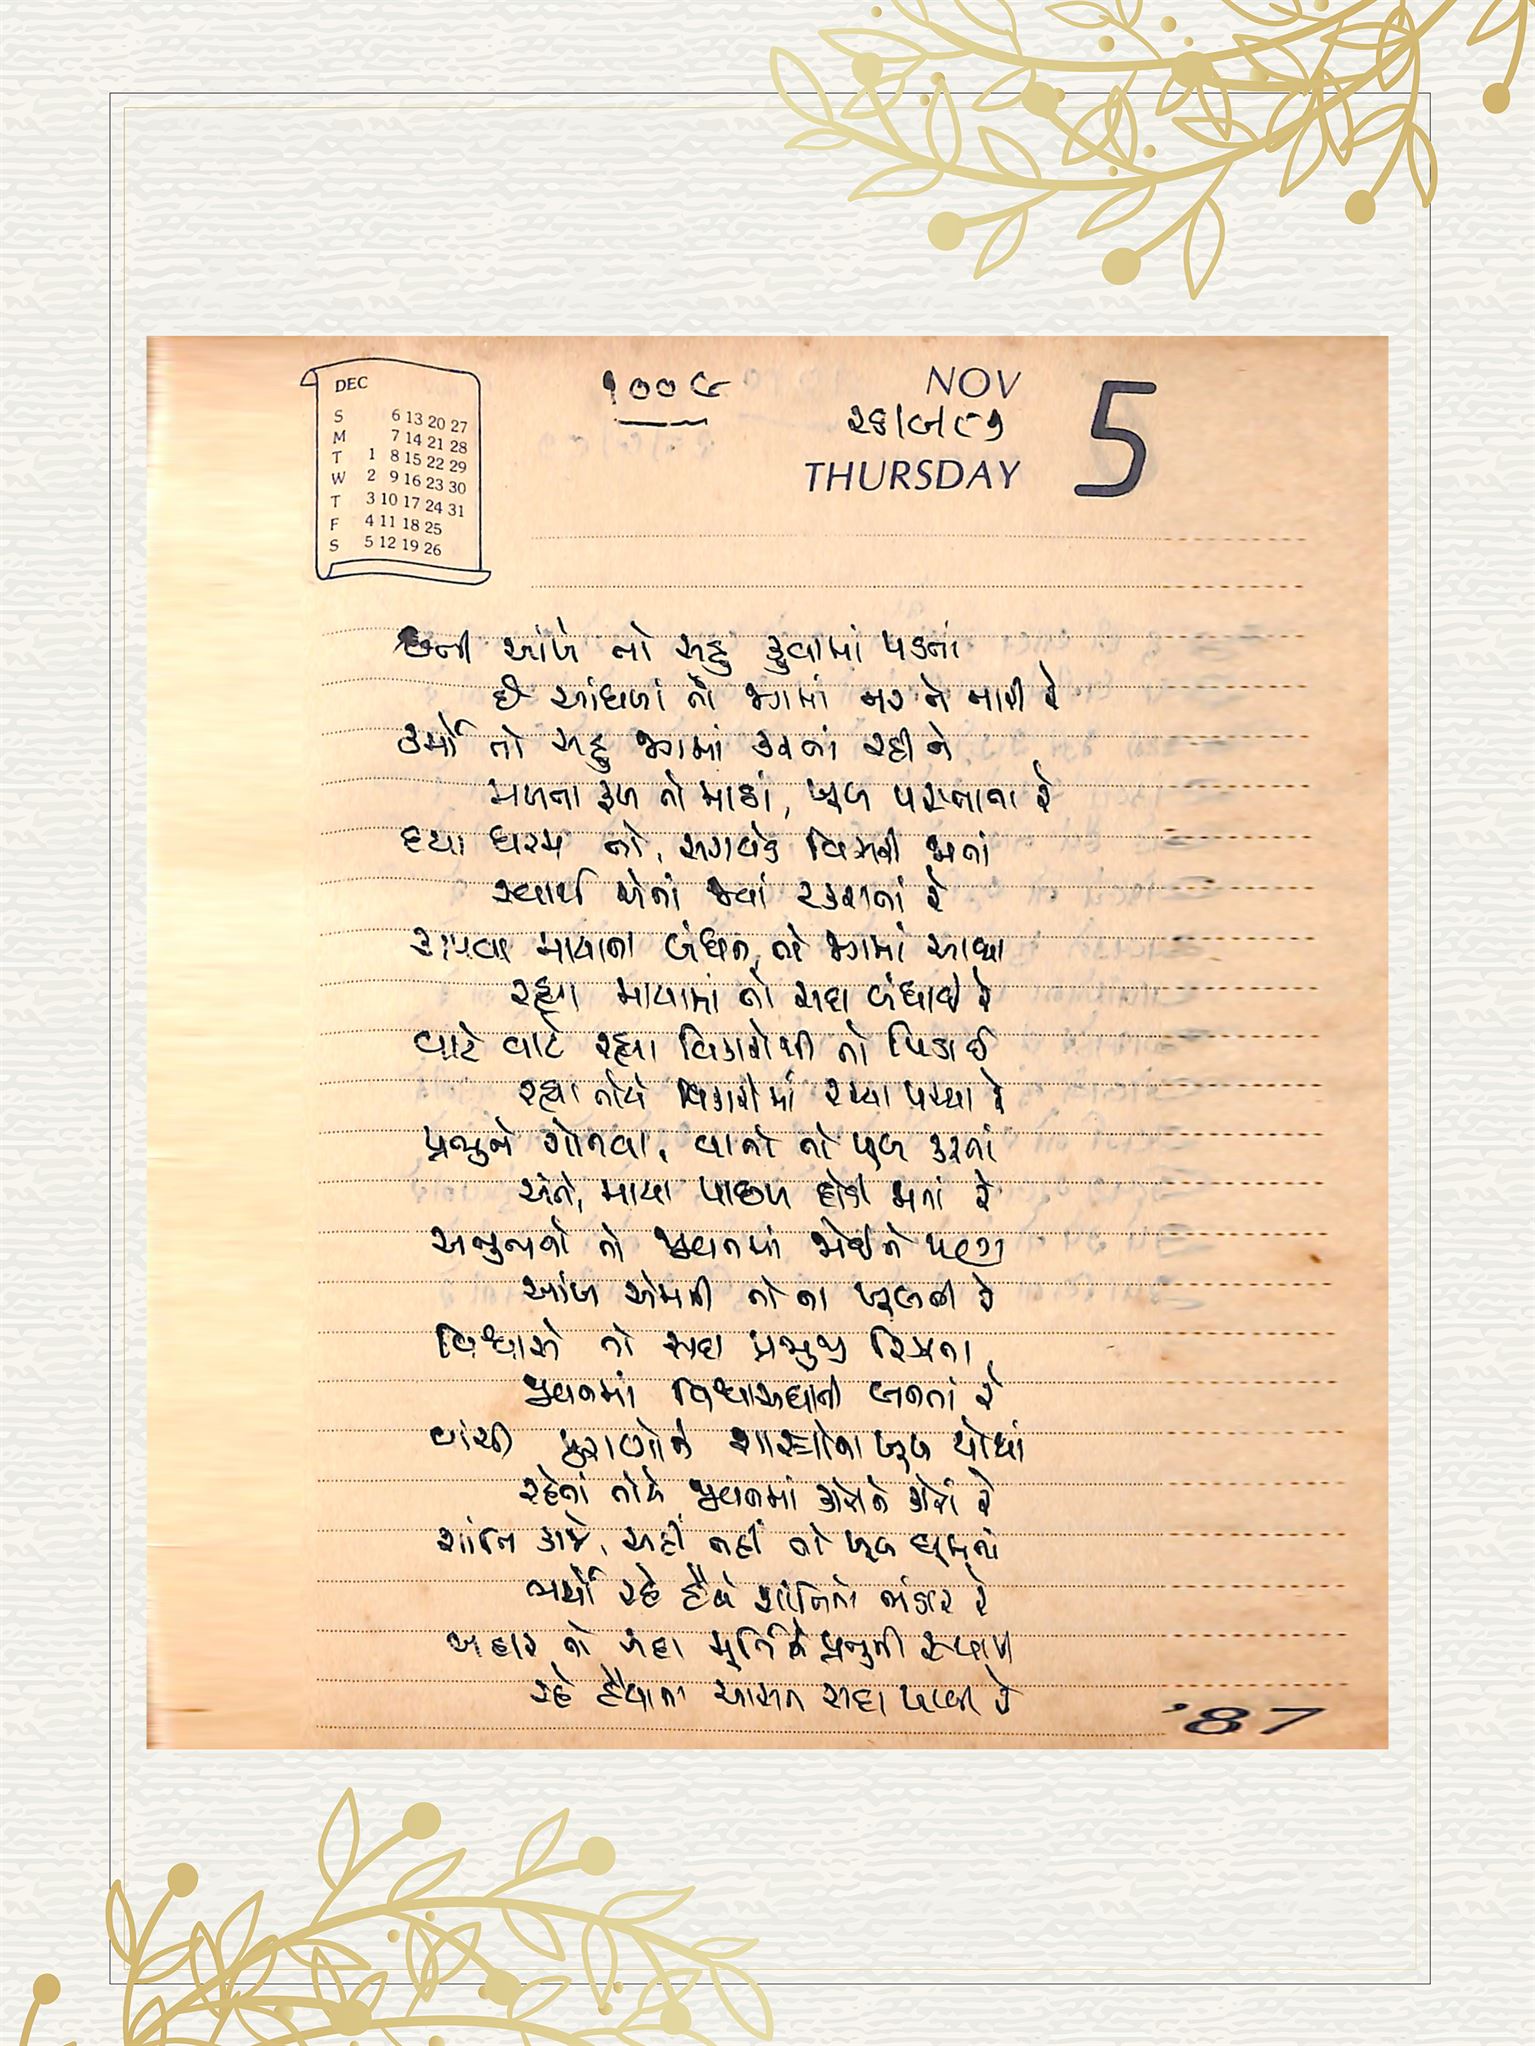 DEC
S 6 13 20 27
M 7 14 21 28
T 1 8 15 22 29
W 2 9 16 23 30
T 3 10 17 24 31
F 4 11 18 25
S 5 12 19 26
૧૦૦૯
NOV 5
૨૬/૯/૮૭
THURSDAY
છતી આંખે તો સહુ કુવામાં પડતાં
છે આંધળાં તો જગમાં નર ને નારી રે
કર્મો તો સહુ જગમાં કરતાં રહીને
મળતા ફળ તો માઠાં, ખૂબ પસ્તાતા રે
દયા ધરમ તો, સગવડે વિસરી જતાં
સ્વાર્થ એનાં જ્યાં ટકરાતાં રે
કાપવા માયાના બંધન, તો જગમાં આવ્યા
રહ્યા માયામાં તો સદા બંધાઈ રે
વાટે વાટે રહ્યા વિકારોથી તો પિડાઈ
રહ્યા તોયે વિકારોમાં રચ્યા પચ્યા રે
પ્રભુને ગોતવા, વાતો તો ખૂબ કરતાં
અંતે, માયા પાછળ દોડી જતાં રે
અનુભવો તો જીવનમાં જોઈને પણ
આંખ એમની તો ના ખૂલતી રે
વિશ્વાસે તો સદા પ્રભુજી રિઝતા
જીવનમાં વિશ્વાસઘાતી બનતાં રે
વાંચી પુરાણોને શાસ્ત્રોના ખૂબ પોથાં
રહેતાં તોયે જીવનમાં કોરાને કોરાં રે
શાંતિ કાજે, અહીં તહીં તો ખૂબ ઘૂમતાં
ભર્યો રહે હૈયે શાંતિનો ભંડાર રે
બહાર તો સદા મૂર્તિ પ્રભુની સ્થાપી
રહે હૈયાના આસન સદા ખાલી રે
'87